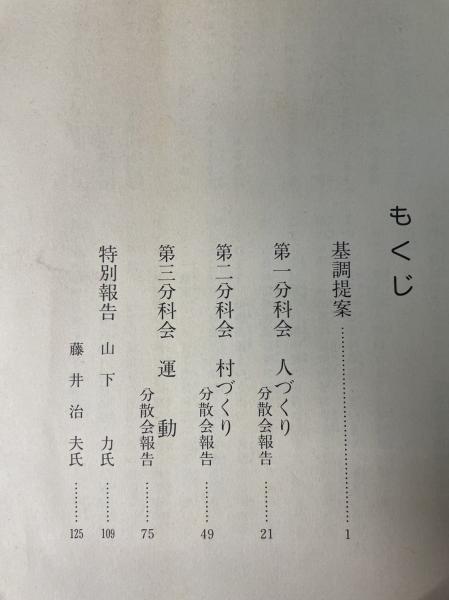 もくじ
基調提案…………………………1
第一分科会 人づくり
分散会報告………21
第二分科会 村づくり
分散会報告………49
第三分科会 運動
分散会報告………75
特別報告 山下 力氏………109
藤井治夫氏………125